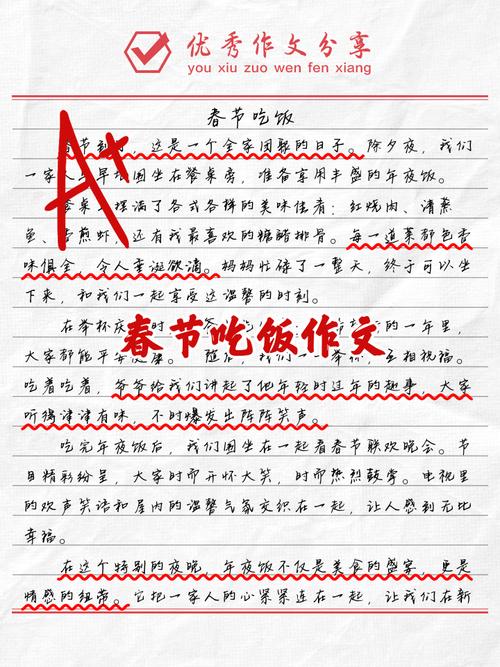 优秀作文分享
you xiu zuo wen fen xiang
春节吃饭
A+
春节到了，这是一个全家团聚的日子。除夕夜，我们
一家人早早围坐在餐桌旁，准备享用丰盛的年夜饭。
餐桌上摆满了各式各样的美味佳肴：红烧肉、清蒸
鱼、煎虾，还有我最喜欢的糖醋排骨。每一道菜都色香
味俱全，令人垂涎欲滴。妈妈忙碌了一整天，终于可以坐
下来，和我们一起享受这温馨的时刻。
在举杯庆 时 的一年里，
春节吃饭作文
大家都能平安健康。随后，我们一 举杯，互相祝福。
吃着吃着，爷爷给我们讲起了他年轻时过年的趣事，大家
听得津津有味，不时爆发出阵阵笑声。
吃完年夜饭后，我们围坐在一起看春节联欢晚会。节
目精彩纷呈，大家时而开怀大笑，时而热烈鼓掌。电视里
的欢声笑语和屋内的温馨气氛交织在一起，让人感到无比
幸福。
在这个特别的夜晚，年夜饭不仅是美食的盛宴，更是
情感的纽带。它把一家人的心紧紧连在一起，让我们在新